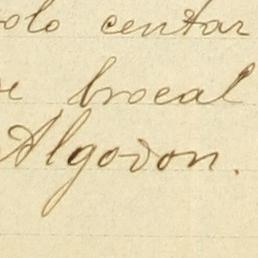 olo centar
e brocal
Algodon.